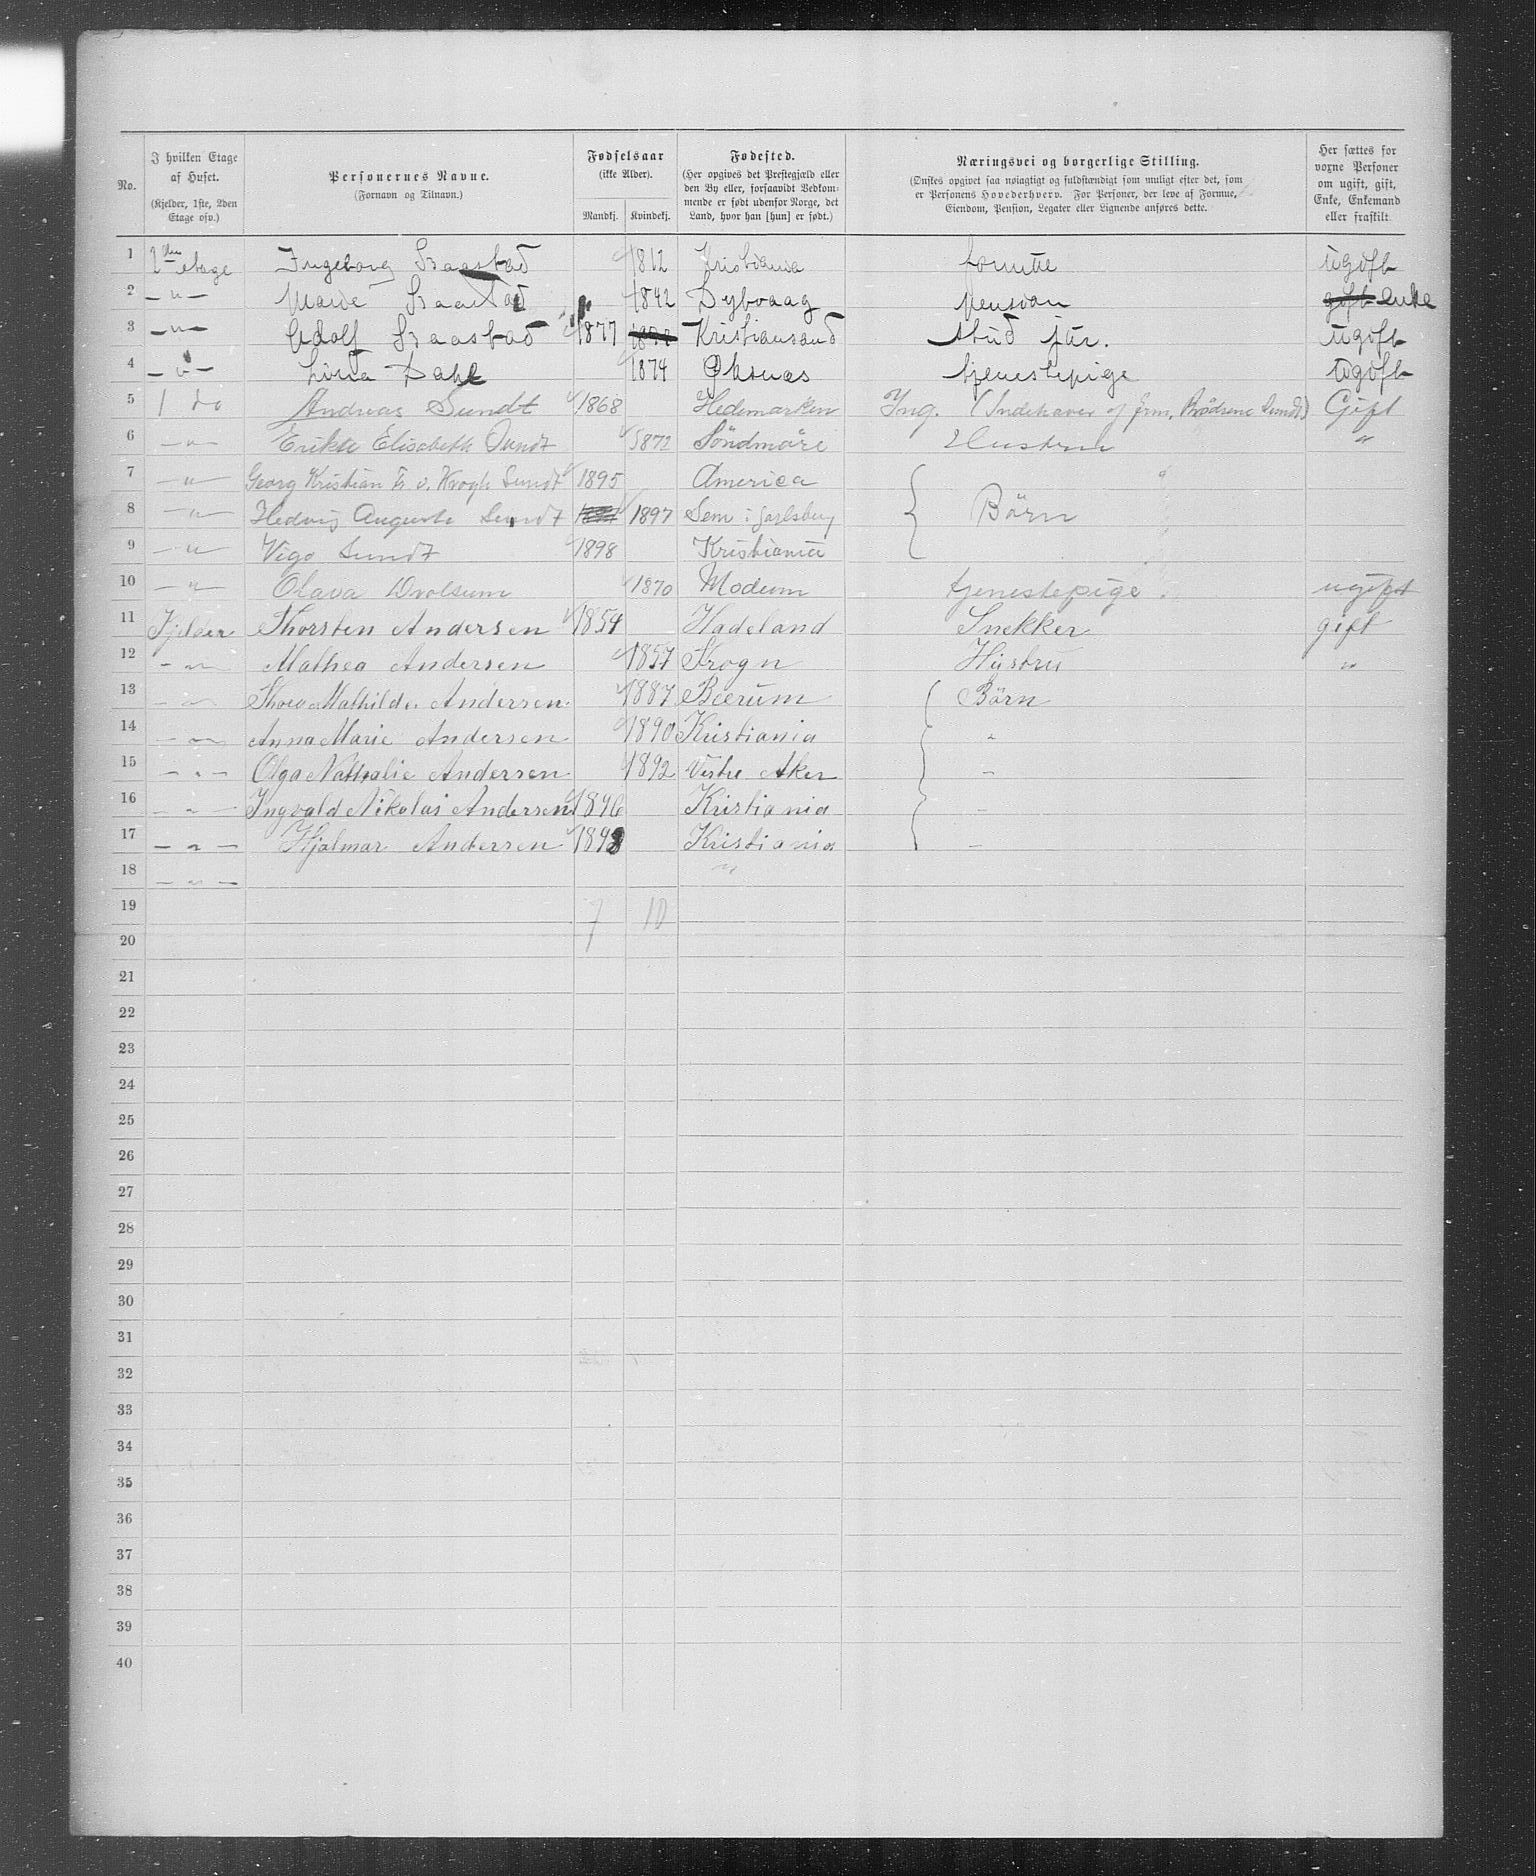 No. | I hvilken Etage af Huset. (Kjelder, 1ste, 2den Etage osv.) | Personernes Navne. (Fornavn og Tilnavn.) | Fødselsaar (ikke Alder). Mandkj. | Kvindekj. | Fødested. (Her opgives det Prestegjæld eller den By eller, forsaavidt Vedkommende er født udenfor Norge, det Land, hvor han [hun] er født.) | Næringsvei og borgerlige Stilling. (Ønskes opgivet saa nøiagtigt og fuldstændigt som muligt efter det, som er Personens Hovederhverv. For Personer, der leve af Formue, Eiendom, Pension, Legater eller Lignende anføres dette. | Her sættes for voxne Personer om ugift, gift, Enke, Enkemand eller fraskilt.
1 | 2den etage | Ingeborg Baastad | | 1812 | Kristiania | formue | ugift
2 | — " — | Marie Baastad | | 1842 | Dybvaag | Pension | gift Enke
3 | — " — | Adolf Baastad | 1877 | | Kristiansand | Stud jur. | ugift
4 | — " — | Lina Dahl | | 1874 | Øksnæs | tjenestepige | Ugift
5 | 1 do | Andreas Sundt | 1868 | | Hedemarken | Ing. (Indehaver af firm. Brödrene Sundt) | Gift
6 | — " — | Erikka Elisabeth Sundt | | 1872 | Söndmöre | Hustru | "
7 | — " — | Georg Kristian Fr. v. Krogh Sundt | 1895 | | America | Börn
8 | — " — | Hedvig Auguste Sundt | | 1897 | Sem i Jarlsberg
9 | — " — | Vigo Sundt | 1898 | | Kristiania
10 | — " — | Olava | | 1870 | Modum | tjenestepige | ugift
11 | Kjelder | Thorsten Andersen | 1854 | | Hadeland | Snekker | gift
12 | — " — | Mathea Andersen | | 1857 | Krogn | Hystru | "
13 | — " — | Mathilde Andersen | | 1887 | Beerum | Börn
14 | — " — | Anna Marie Andersen | | 1890 | Kristiania | "
15 | — " — | Olga Nathalie Andersen | | 1892 | Vestre Aker | —
16 | — " — | Ingvald Nikolai Andersen | 1896 | | Kristiania | —
17 | — " — | Hjalmar Andersen | 1898 | | Kristiania | —
18 | — " — | | | | "
19 | | | 7 | 10
20
21
22
23
24
25
26
27
28
29
30
31
32
33
34
35
36
37
38
39
40